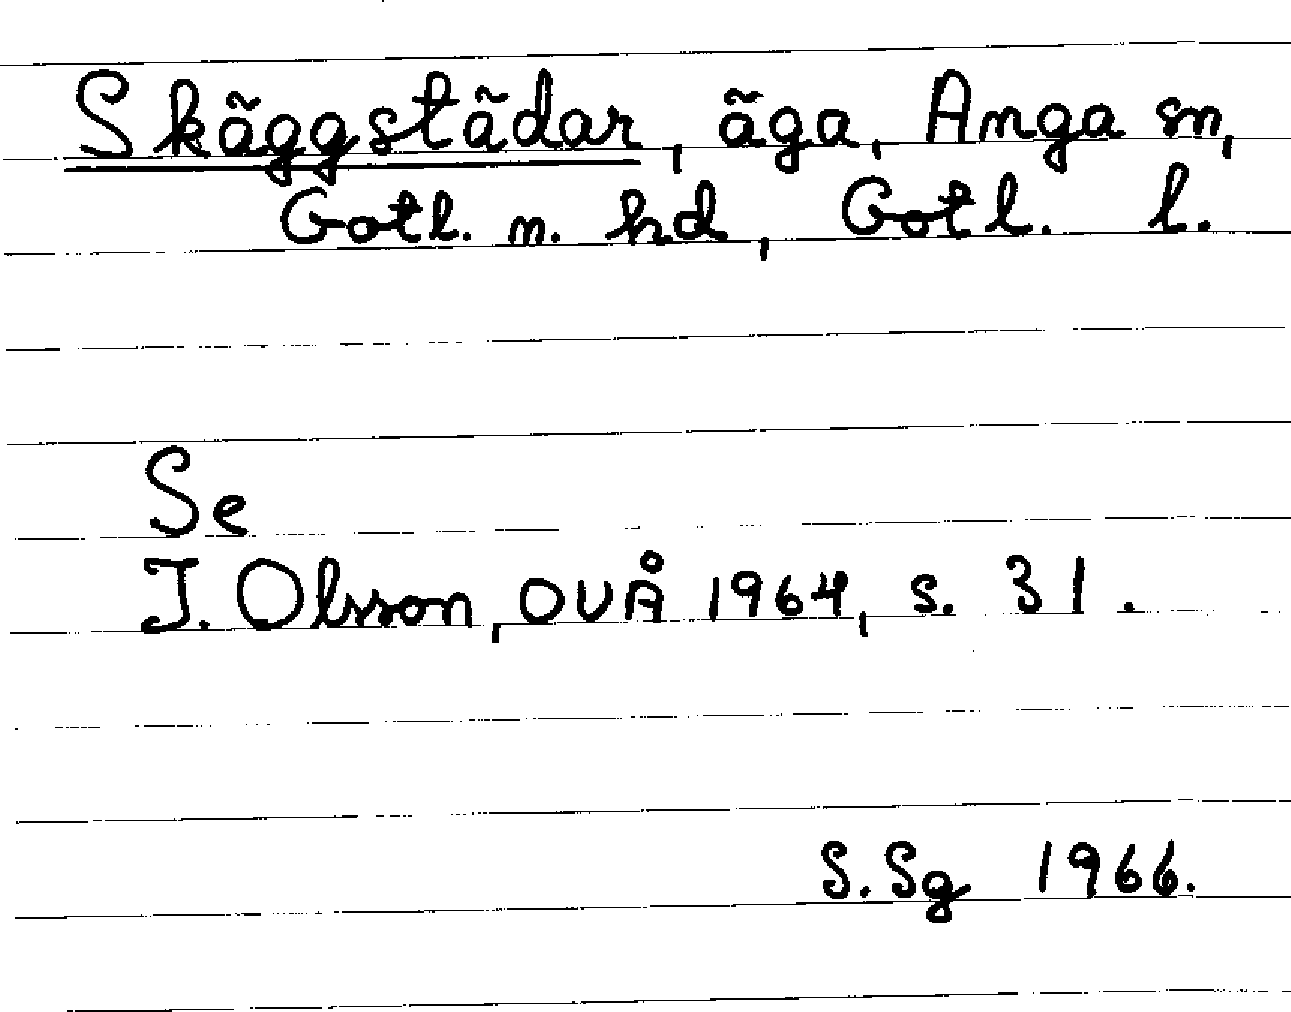 Skäggstädar, äga, Anga sn,
Gotl. n. hd, Gotl. l.
Se
I. Olsson, OUÅ 1964, s. 31.
S. Sg 1966.